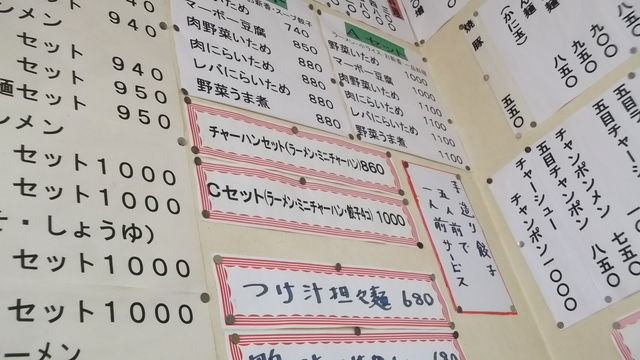 940
セット
セット 940
麺セット 950
メン 950
セット1000
セット1000
・しょうゆ）
セット1000
セット1000
ーメン
マーボー豆腐 740
肉野菜いため 850
肉にらいため 880
レバにらいため 880
野菜うま煮 880
Aセット
野菜いため 1000
マーボー豆腐 1000
肉野菜いため 1100
肉にらいため 1100
レバにらいため 1100
野菜うま煮 1100
チャーハンセット(ラーメン・ミニチャーハン)860
Cセット(ラーメン・ミニチャーハン・餃子4コ) 1000
つけ汁担々麺 680
手造り餃子
五人前で
一人前サービス
麺
(かに玉)
焼豚 五五〇
五目チャ
五目チャ
チャンポンメン 七五
五目チャンポン 八五〇
チャーシュー
チャンポン一〇〇〇